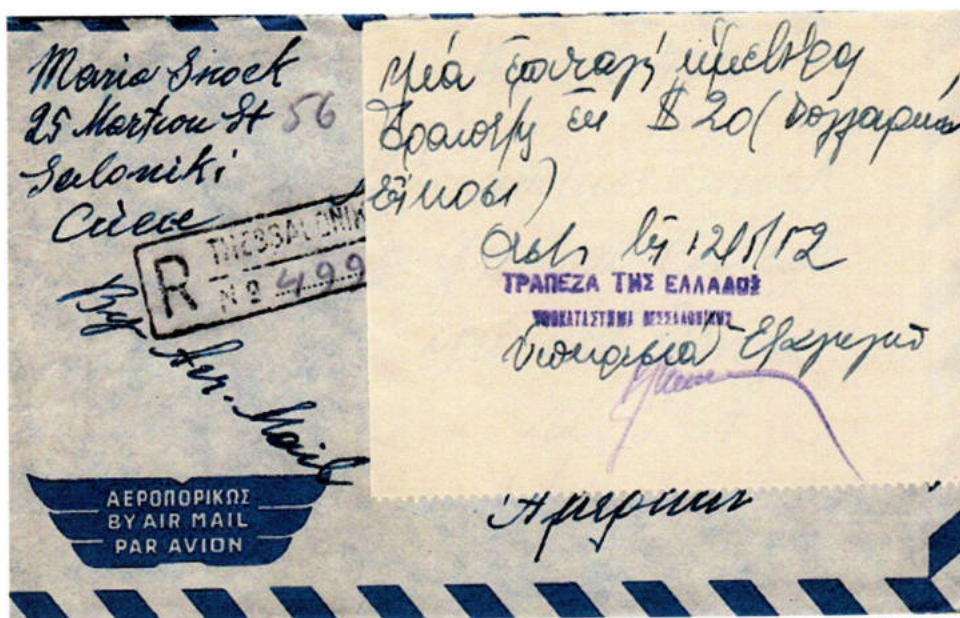 Maria Snock
25 Martiou St 56
Saloniki
Greece
THESSALONIK
R
No 499
By Aer. Mail
ΑΕΡΟΠΟΡΙΚΩΣ
BY AIR MAIL
PAR AVION
Μία ἐπιταγή ἡμετέρα
ἐκ $ 20 (δολλαρίων
εἴκοσι)
12/5/52
ΤΡΑΠΕΖΑ ΤΗΣ ΕΛΛΑΔΟΣ
ΥΠΟΚΑΤΑΣΤΗΜΑ ΘΕΣΣΑΛΟΝΙΚΗΣ
Ἀμερικήν